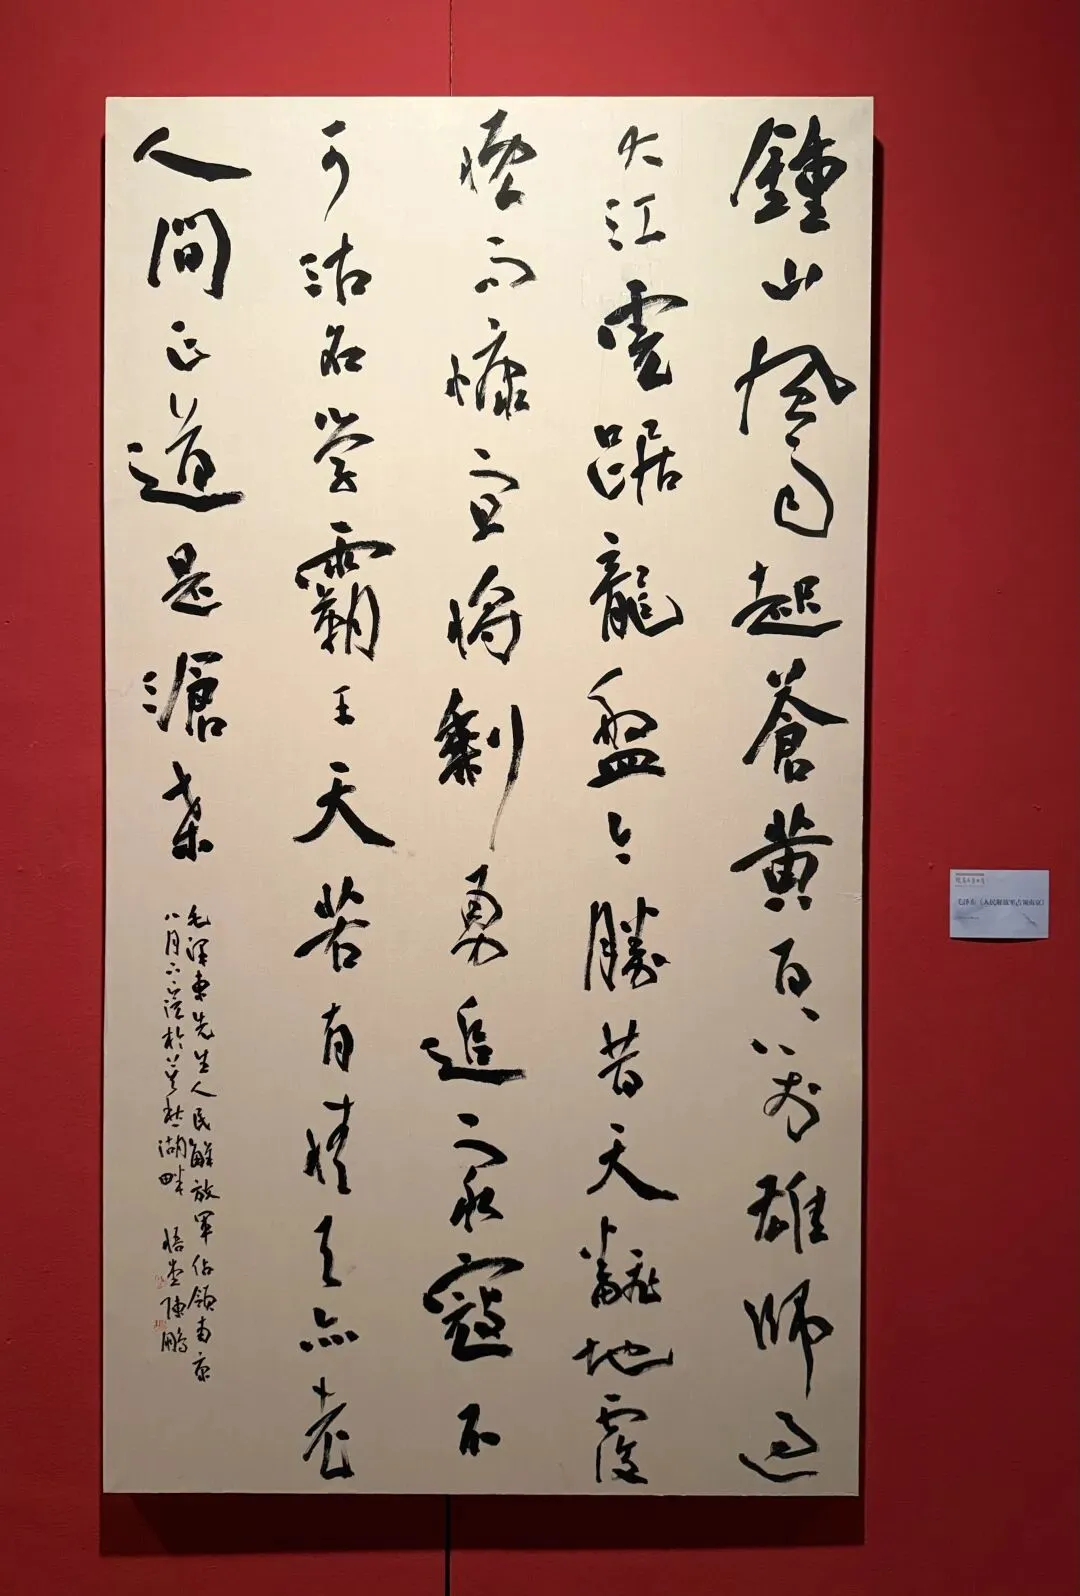 鍾山風雨起蒼黃百萬雄師過
大江虎踞龍盤今勝昔天翻地覆
慨而慷宜將剩勇追窮寇不
可沽名學霸王天若有情天亦老
人間正道是滄桑
毛澤東先生人民解放軍佔領南京
八月於莫愁湖畔 悟堂陳鵬
毛泽东《人民解放军占领南京》